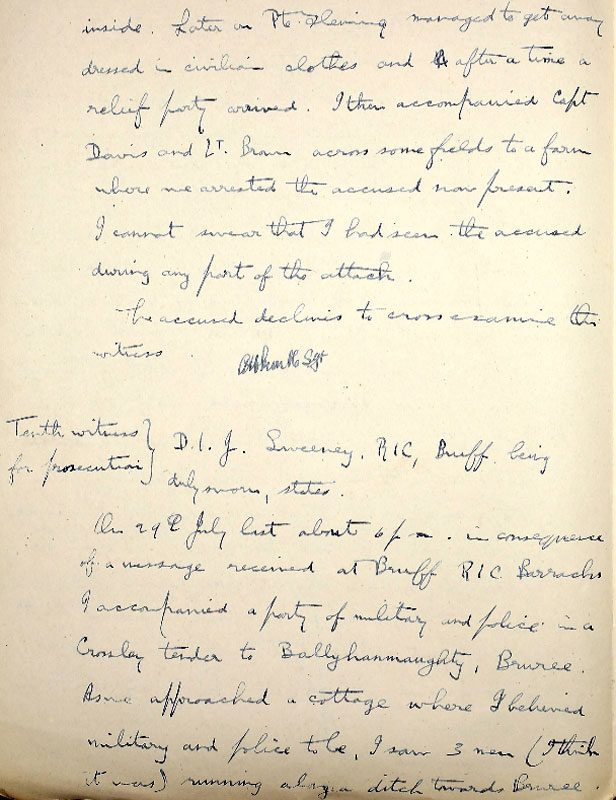 inside. Later on Pte Fleming managed to get away
dressed in civilian clothes and after a time a
relief party arrived. I then accompanied Capt
Davis and Lt. Brown across some fields to a farm
where we arrested the accused now present.
I cannot swear that I had seen the accused
during any part of the attack.
The accused declines to cross examine this
witness
Sgt
Tenth witness
for prosecution
D.I. J. Sweeney, RIC, Bruff being
duly sworn, states.
On 29th July last about 6 p.m. in consequence
of a message received at Bruff RIC Barracks
I accompanied a party of military and police in a
Crossley tender to Ballyhanmaughty, Bruree.
As we approached a cottage where I believed
military and police to be, I saw 3 men (I think
it was) running along a ditch towards Bruree.